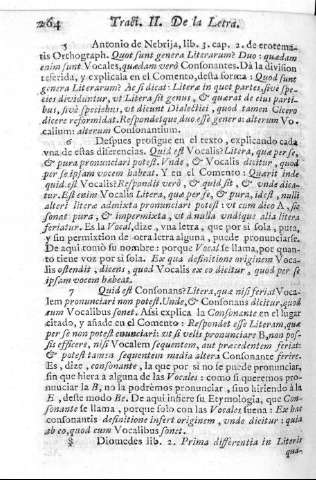 264 Tract. II. De la Letra.
5 Antonio de Nebrija, lib. 3. cap. 2. de erotema-
tis Orthograph. Quot sunt genera Literarum? Duo: quædam
enim sunt Vocales, quædam verò Consonantes. Dà la division
referida, y explicala en el Comento, desta forma: Quod sunt
genera Literarum? Ac si dicat: Litera in quot partes, sivè spe-
cies dividuntur, vt Litera sit genus, & quærat de eius parti-
bus, sivè speciebus, vt dicunt Dialectici, quod tamen Cicero
dicere reformidat. Respondetque duo esse genera: alterum Vo-
calium: alterum Consonantium.
6 Despues prosigue en el texto, explicando cada
vna de estas diferencias. Quid est Vocalis? Litera, quæ per se,
& pura pronunciari potest. Vnde, & Vocalis dicitur, quod
per se ipsam vocem habeat. Y en el Comento: Quærit inde
quid est Vocalis? Respondit verò, & quid sit, & vnde dica-
tur. Est enim Vocalis Litera, quæ per se, & pura, id est, nulli
alteri litera admixta pronunciari potest: vt cum dico A, se
sonat pura, & impermixta, vt à nulla vndique alia litera
feriatur. Es la Vocal, dize, vna letra, que por si sola, pura,
y sin permixtion de otra letra alguna, puede pronunciarse.
De aqui tomò su nombre: porque Vocal se llama, por quan-
to tiene voz por si sola. Ex qua definitione originem Voca-
lis ostendit, dicens, quod Vocalis ex eo dicitur, quod per se
ipsam vocem habeat.
7 Quid est Consonans? Litera, quæ nisi feriat Voca-
lem pronunciari non potest. Unde, & Consonans dicitur, quod
cum Vocalibus sonet. Assi explica la Consonante en el lugar
citado, y añade en el Comento: Respondet esse Literam, quæ
per se non potest enunciari: vt si velis pronunciare B, non pos-
sis efficere, nisi Vocalem sequentem, aut præcedentem feriat:
& potest tamen sequentem media altera Consonante ferire.
Es, dize, consonante, la que por si no se puede pronunciar,
sin que hiera a alguna de las Vocales: como si queremos pro-
nunciar la B, no la podrèmos pronunciar, sino hiriendo à la
E, deste modo Be. De aqui infiere su Etymologia, que Con-
sonante se llama, porque solo con las Vocales suena: Ex hac
consonantis definitione infert originem, vnde dicitur: quia
ab eo, quod cum Vocalibus sonet.
8 Diomedes lib. 2. Prima differentia in Literis
qua-